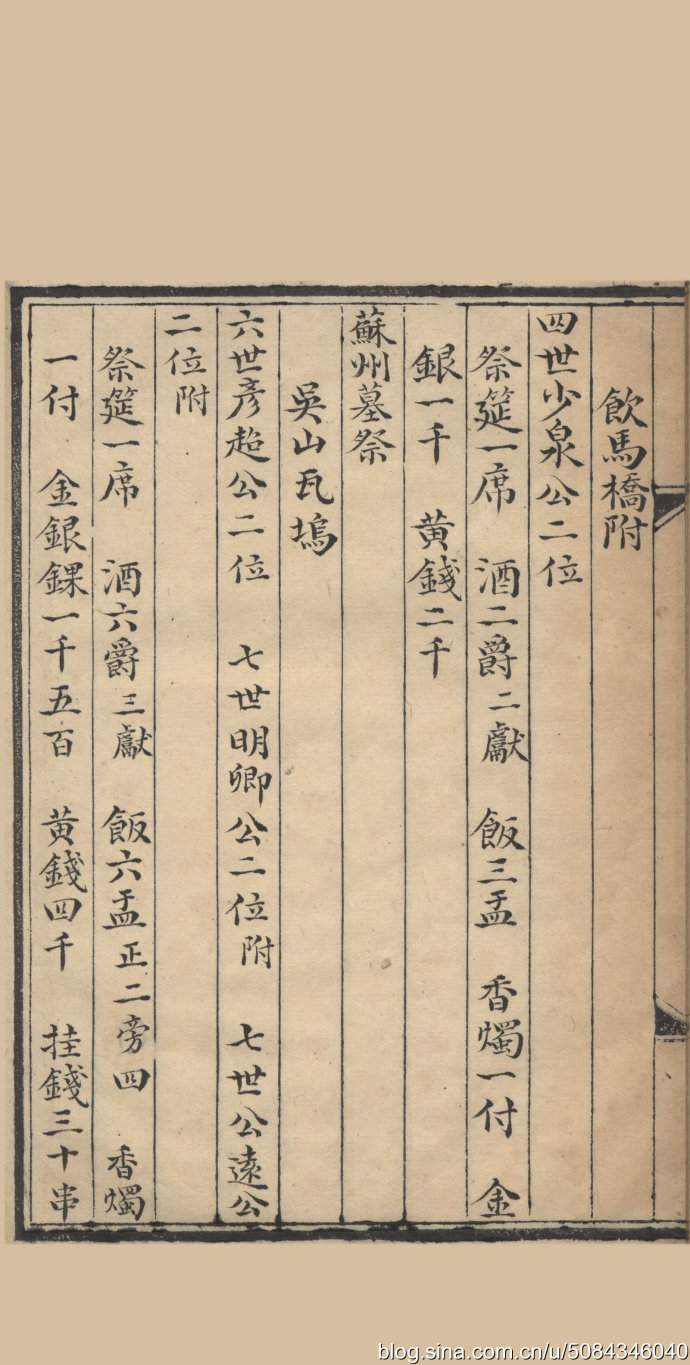 飲馬橋附
四世少泉公二位
祭筵一席 酒二爵二獻 飯三盂 香燭一付 金
銀一千 黄錢二千
蘇州墓祭
吳山瓦塢
六世彥超公二位 七世明卿公二位附 七世公遠公
二位附
祭筵一席 酒六爵三獻 飯六盂正二旁四 香燭
一付 金銀錁一千五百 黄錢四千 挂錢三十串
blog.sina.com.cn/u/5084346040